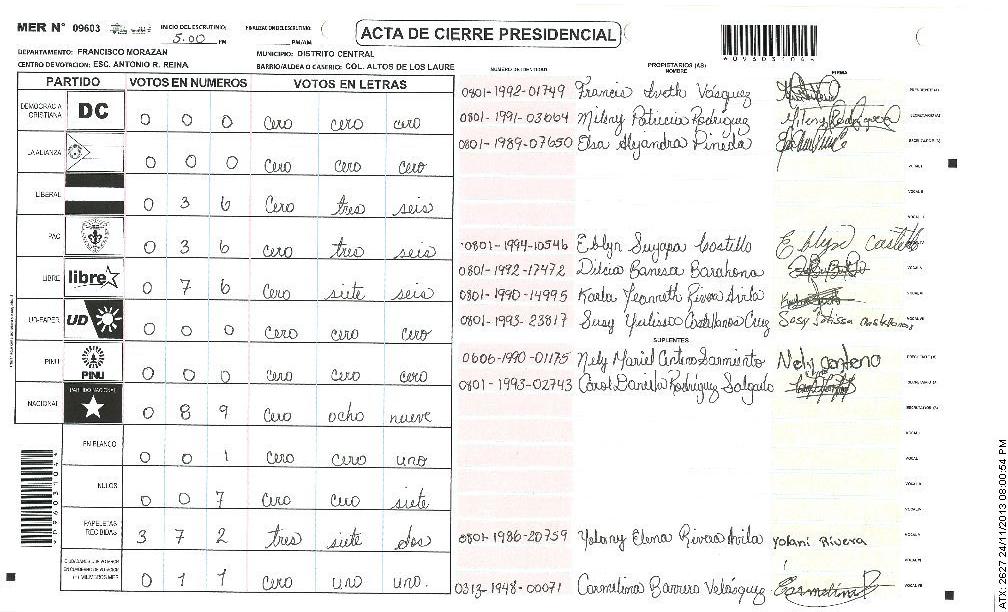 MER N° 09603 INICIO DEL ESCRUTINIO: 5:00 PM FINALIZACION DEL ESCRUTINIO: PM/AM
ACTA DE CIERRE PRESIDENCIAL
DEPARTAMENTO: FRANCISCO MORAZAN MUNICIPIO: DISTRITO CENTRAL
CENTRO DE VOTACION: ESC. ANTONIO R. REINA BARRIO/ALDEA O CASERIO: COL. ALTOS DE LOS LAURE
PARTIDO VOTOS EN NUMEROS VOTOS EN LETRAS
DEMOCRACIA CRISTIANA DC 0 0 0 Cero cero cero
LA ALIANZA 0 0 0 Cero cero cero
LIBERAL 0 3 6 Cero tres seis
PAC 0 3 6 Cero tres seis
LIBRE libre 0 7 6 Cero siete seis
UD-FAPER UD 0 0 0 Cero cero cero
PINU PINU 0 0 0 Cero cero cero
NACIONAL PARTIDO NACIONAL 0 8 9 Cero ocho nueve
EN BLANCO 0 0 1 Cero cero uno
NULOS 0 0 7 Cero cero siete
PAPELETAS RECIBIDAS 3 7 2 tres siete dos
0 1 1 Cero uno uno.
NUMERO DE IDENTIDAD PROPIETARIOS (AS) NOMBRE FIRMA
0801-1992-01749 Francis Iveth Vásquez
0801-1991-03664 Mileny Patricia Rodriguez
0801-1989-07650 Elsa Alejandra Pineda
0801-1994-10546 Eblyn Suyapa Costillo
0801-1992-17472 Dilcia Banesa Barahona
0801-1990-14995 Karla Jeanneth Rivera Avila
0801-1993-23817 Susy Yulissa Castellanos Cruz
SUPLENTES
0606-1990-01175 Nely Mariel Centeno Sarmiento Nely Centeno
0801-1993-02743 Carol Daniela Rodriguez Salgado
0801-1986-20759 Yolany Elena Rivera Avila Yolani Rivera
0313-1948-00071 Carmelina Barrera Velásquez
ATX: 2627 24/11/2013 08:00:54 PM